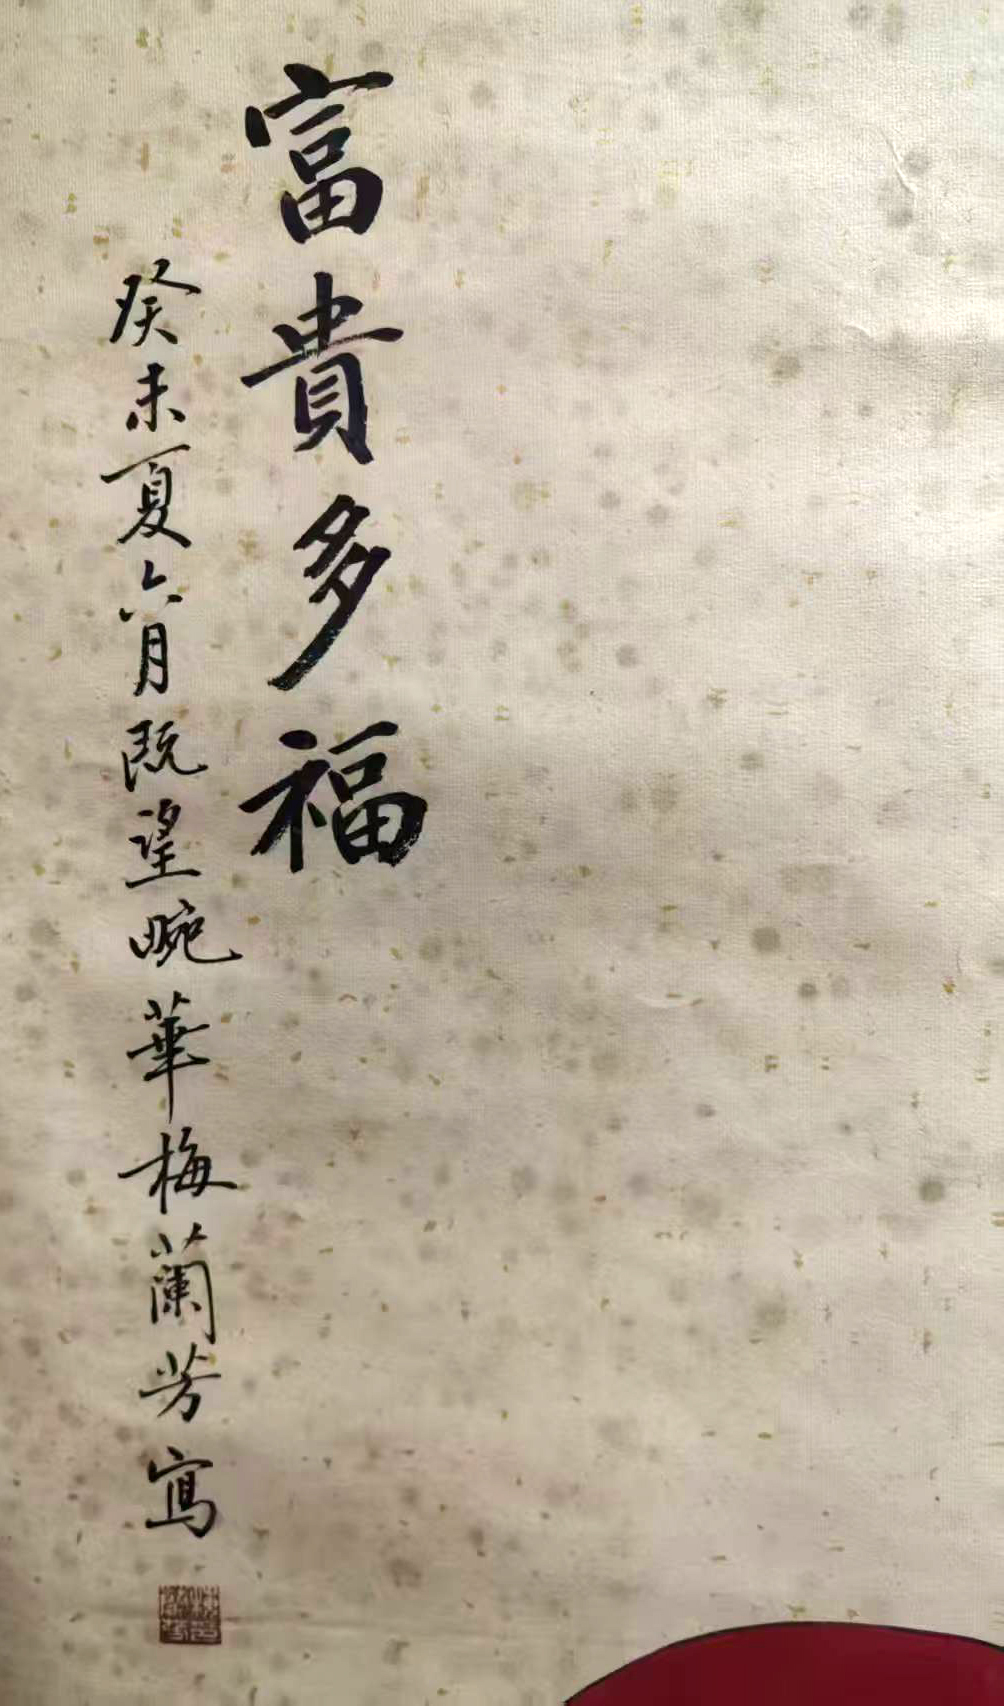 富貴多福
癸未夏六月既望畹華梅蘭芳寫